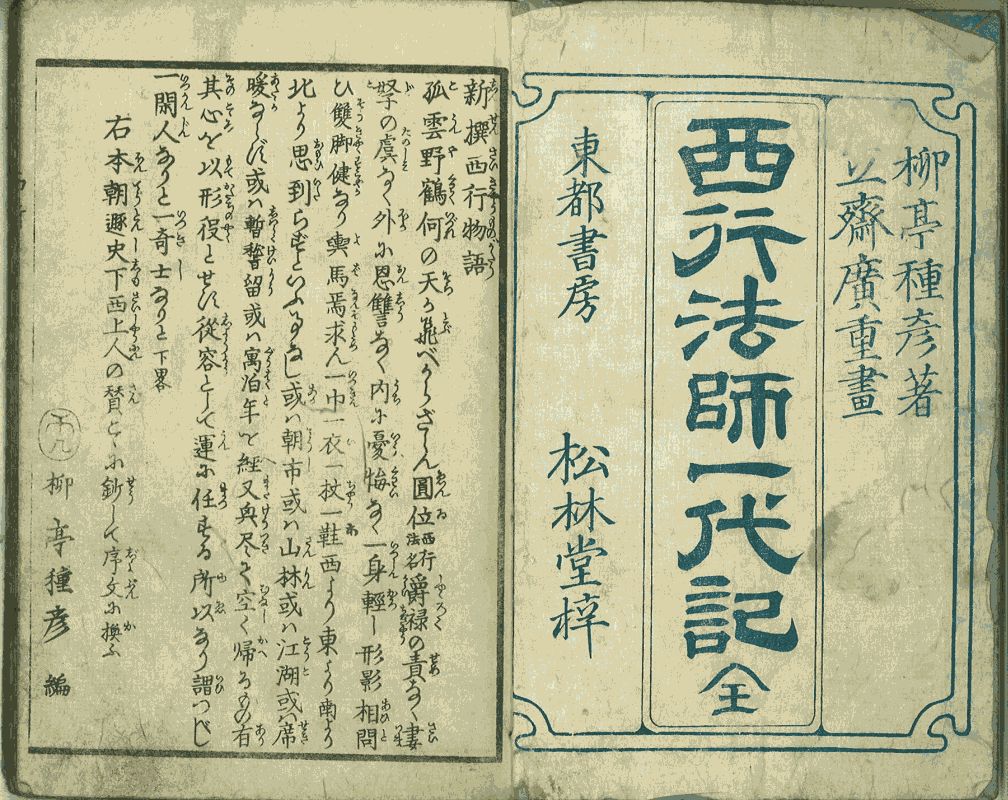 柳亭種彦著
立齋廣重畫
西行法師一代記 全
東都書房 松林堂梓
新撰西行物語
孤雲野鶴何の天か飛べからざらん圓位西行法名爵禄の責なく妻
孥の虞なく外に恩讐なく内に憂悔なく一身輕し形影相問
ひ雙脚健なり輿馬焉求ん一巾一衣一杖一鞋西より東より南より
北より思到らずといふ事なし或ハ朝市或ハ山林或ハ江湖或ハ席
暖ならず或ハ暫留或ハ寓泊年を經又興尽て空く帰るもの有
其心を以形役とせず從容として運に任する所以なり謂つべし
一閑人なりと一奇士なりと下畧
右本朝遯史下西上人の賛こゝに鈔して序文に換ふ
柳亭種彦編